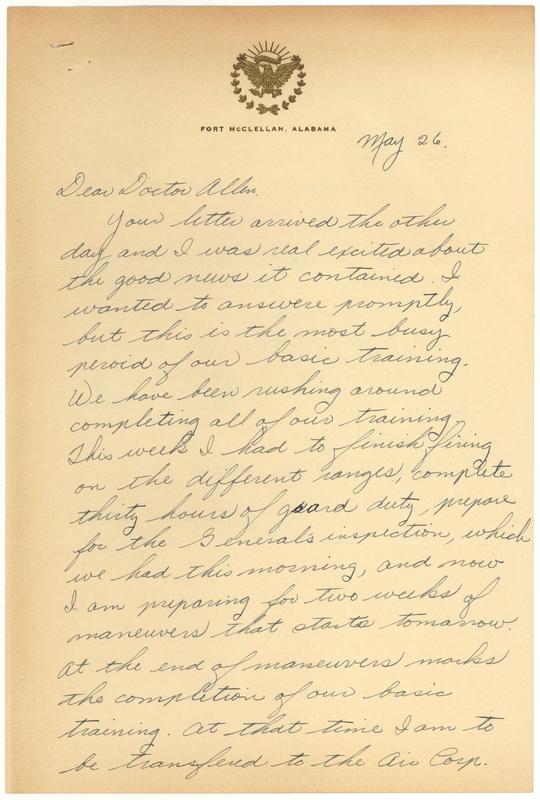 FORT McCLELLAN, ALABAMA
May 26.
Dear Doctor Allen,
Your letter arrived the other
day and I was real excited about
the good news it contained. I
wanted to answere promptly,
but this is the most busy
peroid of our basic training.
We have been rushing around
completing all of our training.
This week I had to finish firing
on the different ranges, complete
thirty hours of guard duty, prepare
for the General's inspection, which
we had this morning, and now
I am preparing for two weeks of
maneuvers that starts tomarrow.
At the end of maneuvers marks
the completion of our basic
training. At that time I am to
be transfered to the Air Corp.